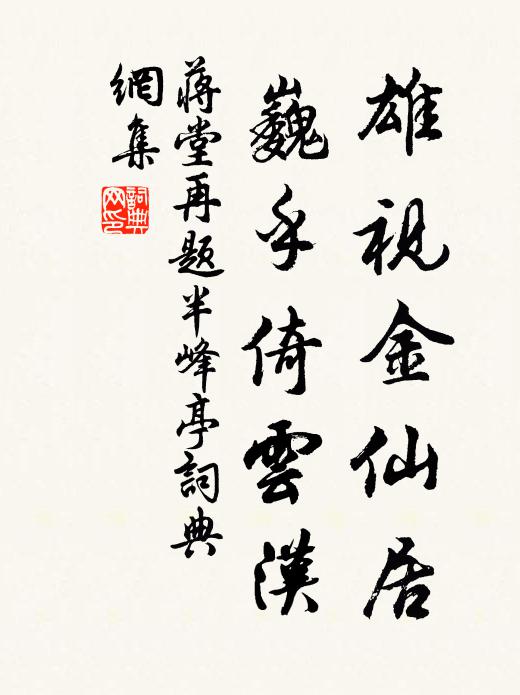 雄視金仙居
巍乎倚雲漢
蔣堂再題半峰亭詞典
網集
詞典網印